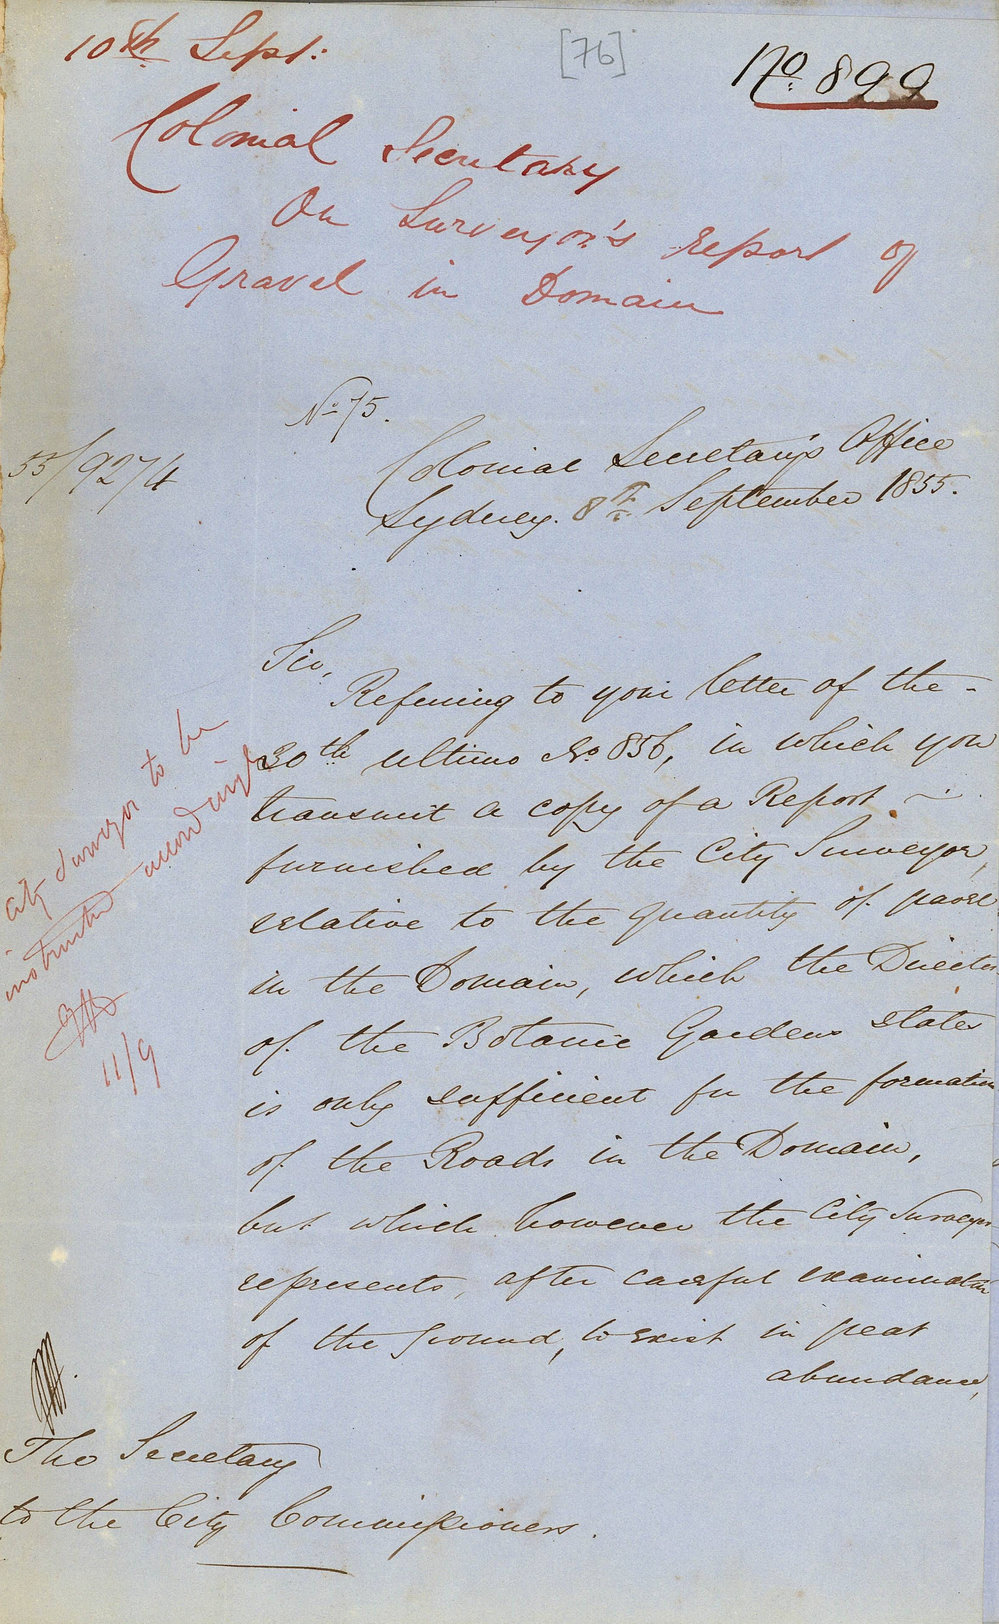 10th Sept:
[76]
No. 899
Colonial Secretary
On Surveyor's report of
Gravel in Domain
No. 75.
55/9274
Colonial Secretary's Office
Sydney. 8th September 1855.
Sir,
Referring to your letter of the
30th ultimo No. 856, in which you
transmit a copy of a Report
furnished by the City Surveyor,
relative to the quantity of gravel
in the Domain, which the Director
of the Botanic Gardens states
is only sufficient for the formation
of the Roads in the Domain,
but which however the City Surveyor
represents, after careful examination
of the ground, to exist in great
abundance,
City Surveyor to be
instructed accordingly
11/9
The Secretary
to the City Commissioners.